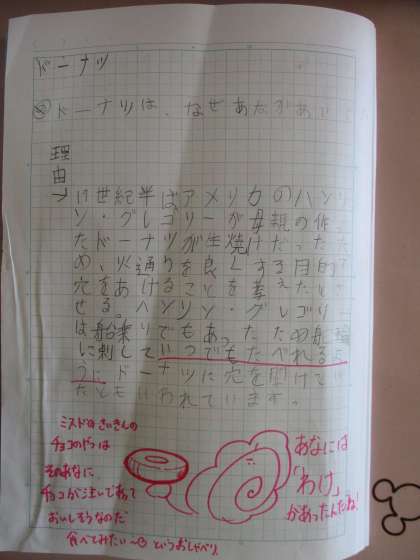 ドーナツ
ドーナツは、なぜあながあ
理由→
けせ紀半ばアメリカのハンソ
ン・グレゴリーが母親の作っ
たドーナツが生焼けだったた
め、火通りを良くする目的で
穴をあけることを考えたと
せる。ハンソン・グレゴリー
は船乗りでもあったため船輪
に刺していつでもたべれるよ
うにドーナツに穴を開けてい
たともいわれています。
ミスドのさいきんの
チョコのやつは
そのあなに
チョコが注いであって
おいしそうなのだ
食べてみたい〜 というおしゃべり。
あなには
「わけ」
があったんだね!